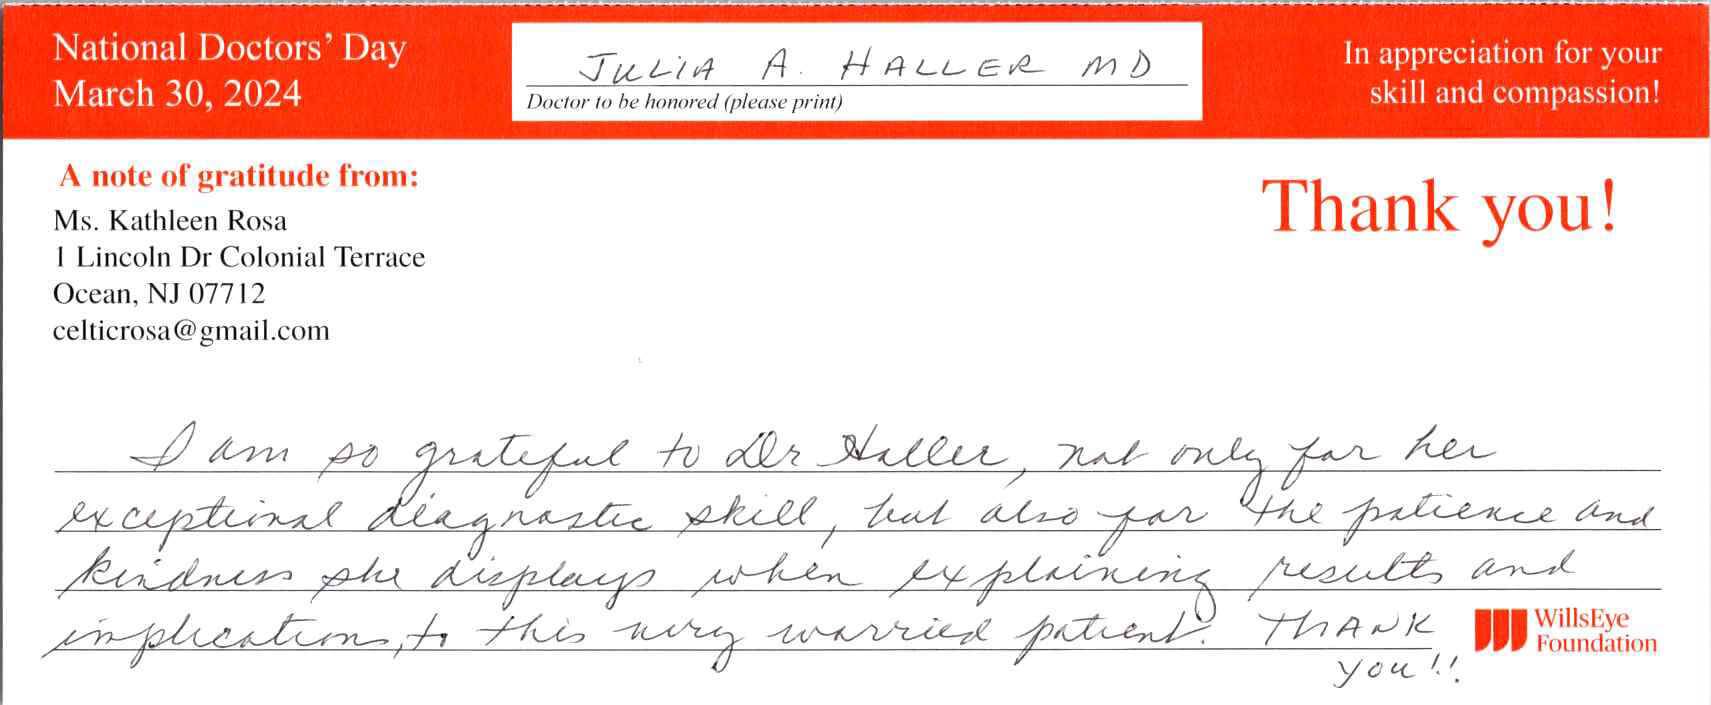 National Doctors' Day
March 30, 2024
JULIA A. HALLER MD
Doctor to be honored (please print)
In appreciation for your
skill and compassion!
A note of gratitude from:
Ms. Kathleen Rosa
1 Lincoln Dr Colonial Terrace
Ocean, NJ 07712
celticrosa@gmail.com
Thank you!
I am so grateful to Dr Haller, not only for her
exceptional diagnostic skill, but also for the patience and
kindness she displays when explaining results and
implications, to this very worried patient. THANK
you!!
WillsEye
Foundation